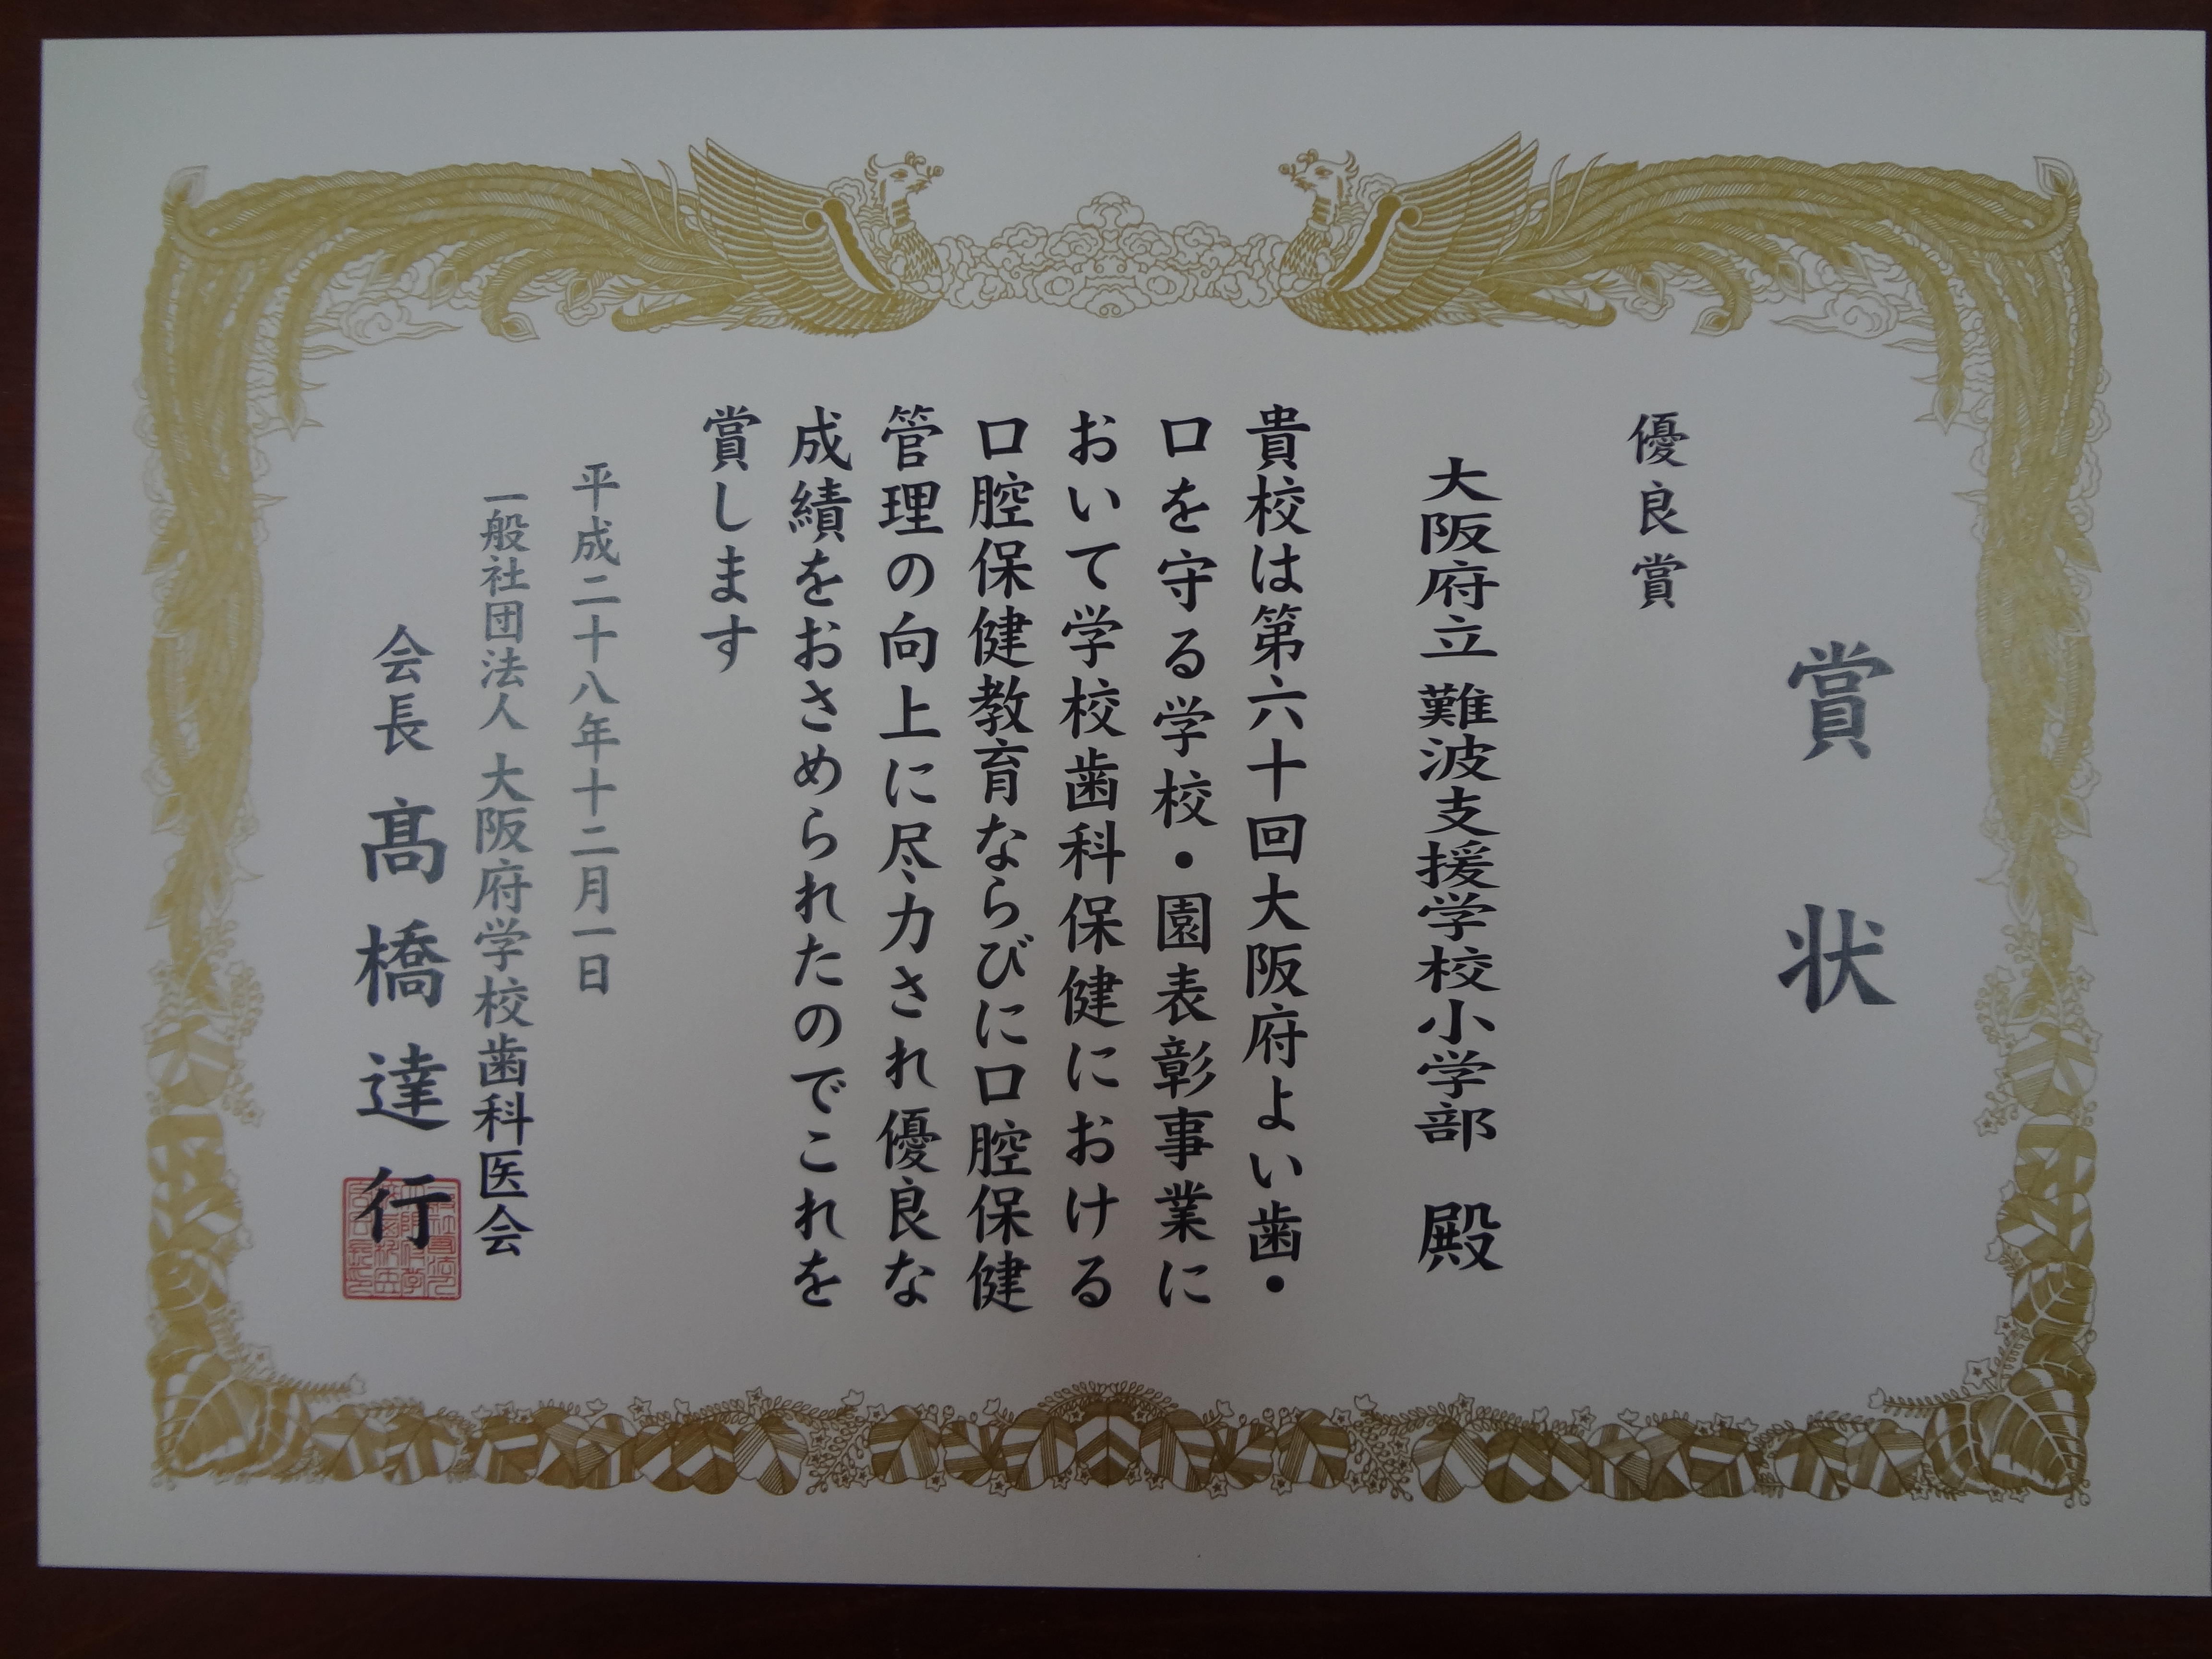 賞状
優良賞
大阪府立難波支援学校小学部 殿
貴校は第六十回大阪府よい歯・
口を守る学校・園表彰事業に
おいて学校歯科保健における
口腔保健教育ならびに口腔保健
管理の向上に尽力され優良な
成績をおさめられたのでこれを
賞します
平成二十八年十二月一日
一般社団法人 大阪府学校歯科医会
会長 髙橋達行